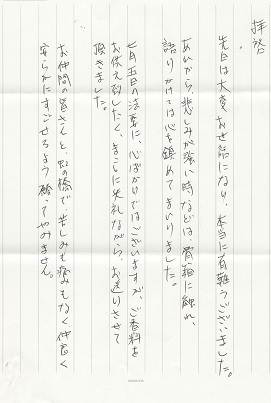 拝啓
先日は大変お世話になり、本当に有難うございました。
あれから、悲しみが強い時などは骨箱に触れ、
語りかけては心を鎮めてまいりました。
七月五日の法要に、心ばかりではございますが、ご香料を
お供え致したく、まことに失礼ながら、お送りさせて
頂きました。
お仲間の皆さんと、虹の橋で苦しみも痛みもなく仲良く
安らかにすごせるよう願ってやみません。